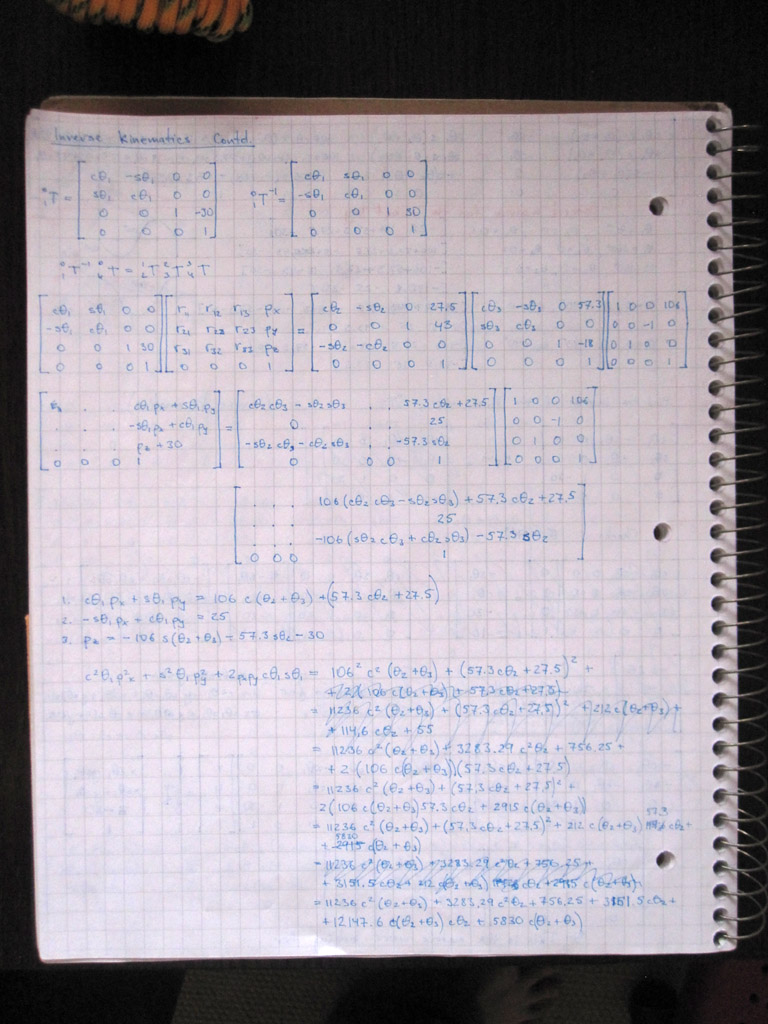 Inverse Kinematics Contd.
⁰₁T = [ cθ₁ -sθ₁ 0 0 ; sθ₁ cθ₁ 0 0 ; 0 0 1 -30 ; 0 0 0 1 ] ⁰₁T⁻¹ = [ cθ₁ sθ₁ 0 0 ; -sθ₁ cθ₁ 0 0 ; 0 0 1 30 ; 0 0 0 1 ]
⁰₁T⁻¹ ⁰₄T = ¹₂T ²₃T ³₄T
[ cθ₁ sθ₁ 0 0 ; -sθ₁ cθ₁ 0 0 ; 0 0 1 30 ; 0 0 0 1 ] [ r₁₁ r₁₂ r₁₃ px ; r₂₁ r₂₂ r₂₃ py ; r₃₁ r₃₂ r₃₃ pz ; 0 0 0 1 ] = [ cθ₂ -sθ₂ 0 27,5 ; 0 0 1 43 ; -sθ₂ -cθ₂ 0 0 ; 0 0 0 1 ] [ cθ₃ -sθ₃ 0 57.3 ; sθ₃ cθ₃ 0 0 ; 0 0 1 -18 ; 0 0 0 1 ] [ 1 0 0 106 ; 0 0 -1 0 ; 0 1 0 0 ; 0 0 0 1 ]
[ . . cθ₁px + sθ₁py ; . . . -sθ₁px + cθ₁py ; . . . pz + 30 ; 0 0 0 1 ] = [ cθ₂cθ₃ - sθ₂sθ₃ . . 57.3 cθ₂ + 27.5 ; 0 . . 25 ; -sθ₂cθ₃ - cθ₂sθ₃ . . -57.3 sθ₂ ; 0 0 0 1 ] [ 1 0 0 106 ; 0 0 -1 0 ; 0 1 0 0 ; 0 0 0 1 ]
[ . . . 106 (cθ₂ cθ₃ - sθ₂sθ₃) + 57.3 cθ₂ + 27.5 ; . . . 25 ; . . . -106 (sθ₂ cθ₃ + cθ₂ sθ₃) - 57.3 sθ₂ ; 0 0 0 1 ]
1. cθ₁ px + sθ₁ py = 106 c(θ₂+θ₃) + (57.3 cθ₂ + 27.5)
2. -sθ₁ px + cθ₁ py = 25
3. pz = -106 s(θ₂+θ₃) - 57.3 sθ₂ - 30
c²θ₁p²x + s²θ₁p²y + 2pxpy cθ₁ sθ₁ = 106² c² (θ₂+θ₃) + (57.3 cθ₂ + 27.5)² +
= 11236 c² (θ₂+θ₃) + (57.3 cθ₂ + 27.5)² + 212 c(θ₂+θ₃) +
+ 114,6 cθ₂ + 55
= 11236 c² (θ₂+θ₃) + 3283.29 c²θ₂ + 756.25 +
+ 2 (106 c(θ₂+θ₃))(57.3 cθ₂ + 27.5)
= 11236 c² (θ₂+θ₃) + (57.3 cθ₂ + 27.5)² +
2(106 c(θ₂+θ₃) 57.3 cθ₂ + 2915 c(θ₂+θ₃))
= 11236 c² (θ₂+θ₃) + (57.3 cθ₂ + 27.5)² + 212 c(θ₂+θ₃) 57.3 cθ₂ +
+ 5830 c(θ₂+θ₃)
= 11236 c² (θ₂+θ₃) + 3283.29 c²θ₂ + 756.25 +
= 11236 c² (θ₂+θ₃) + 3283.29 c²θ₂ + 756.25 + 3151.5 cθ₂ +
+ 12147.6 c(θ₂+θ₃) cθ₂ + 5830 c(θ₂+θ₃)